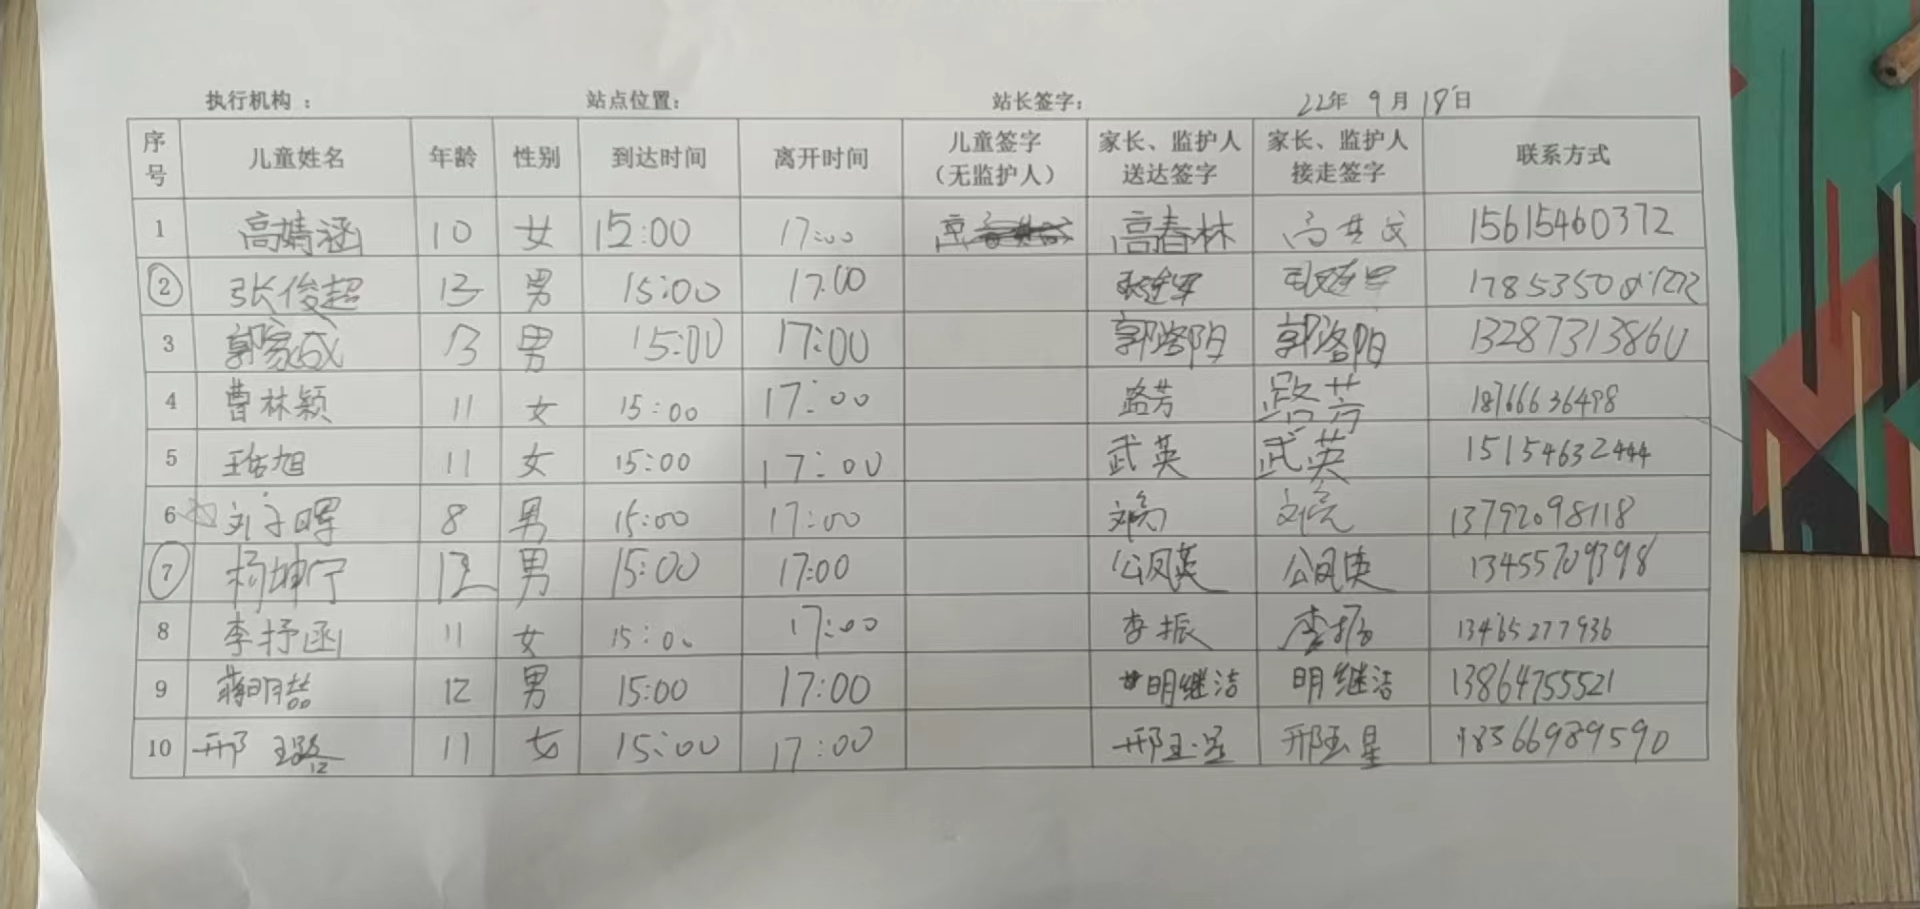 执行机构： 站点位置： 站长签字： 22年 9月18日
序号 儿童姓名 年龄 性别 到达时间 离开时间 儿童签字（无监护人） 家长、监护人送达签字 家长、监护人接走签字 联系方式
1 高婧涵 10 女 15:00 17:00 高春林 15615460372
2 张俊超 13 男 15:00 17:00 1785350
3 郭家成 13 男 15:00 17:00 郭洛阳 郭洛阳 13287313860
4 曹林颖 11 女 15:00 17:00 路芳 路芳 18766636498
5 王佑旭 11 女 15:00 17:00 武英 武英 15154632444
6 刘子晖 8 男 15:00 17:00 刘亮 13792098118
7 杨坤宁 12 男 15:00 17:00 公凤英 公凤英 13455709398
8 李抒函 11 女 15:00 17:00 李振 李振 13465277936
9 蒋明喆 12 男 15:00 17:00 明继洁 明继洁 13864755521
10 邢 璐 12 11 女 15:00 17:00 邢玉星 邢玉星 18366989590